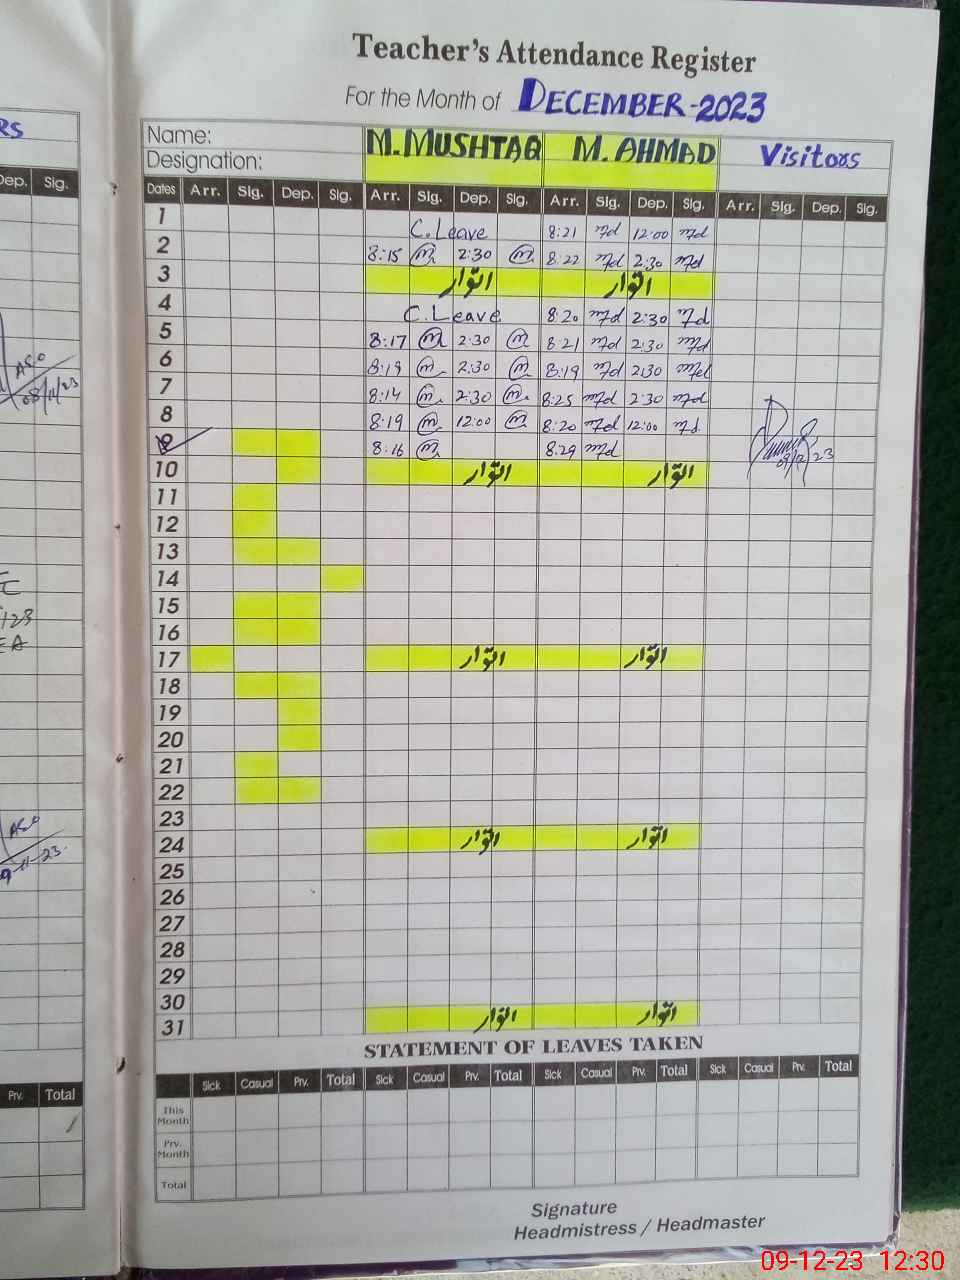 Teacher's Attendance Register
For the Month of DECEMBER-2023
Name: M. MUSHTAQ M. AHMAD Visitors
Designation:
Dates Arr. Sig. Dep. Sig. Arr. Sig. Dep. Sig. Arr. Sig. Dep. Sig. Arr. Sig. Dep. Sig.
1 C. Leave 8:21 12:00
2 8:15 2:30 8:22 2:30
3 اتوار اتوار
4 C. Leave 8:20 2:30
5 8:17 2:30 8:21 2:30
6 8:19 2:30 8:19 2:30
7 8:14 2:30 8:25 2:30
8 8:19 12:00 8:20 12:00
9 8:16 8:29 09/12/23
10 اتوار اتوار
11
12
13
14
15
16
17 اتوار اتوار
18
19
20
21
22
23
24 اتوار اتوار
25
26
27
28
29
30
31 اتوار اتوار
STATEMENT OF LEAVES TAKEN
Sick Casual Prv. Total Sick Casual Prv. Total Sick Casual Prv. Total Sick Casual Prv. Total
This Month
Prv. Month
Total
Signature
Headmistress / Headmaster
RS
Dep. Sig.
ASO
08/11/23
ASO
Prv. Total
09-12-23 12:30